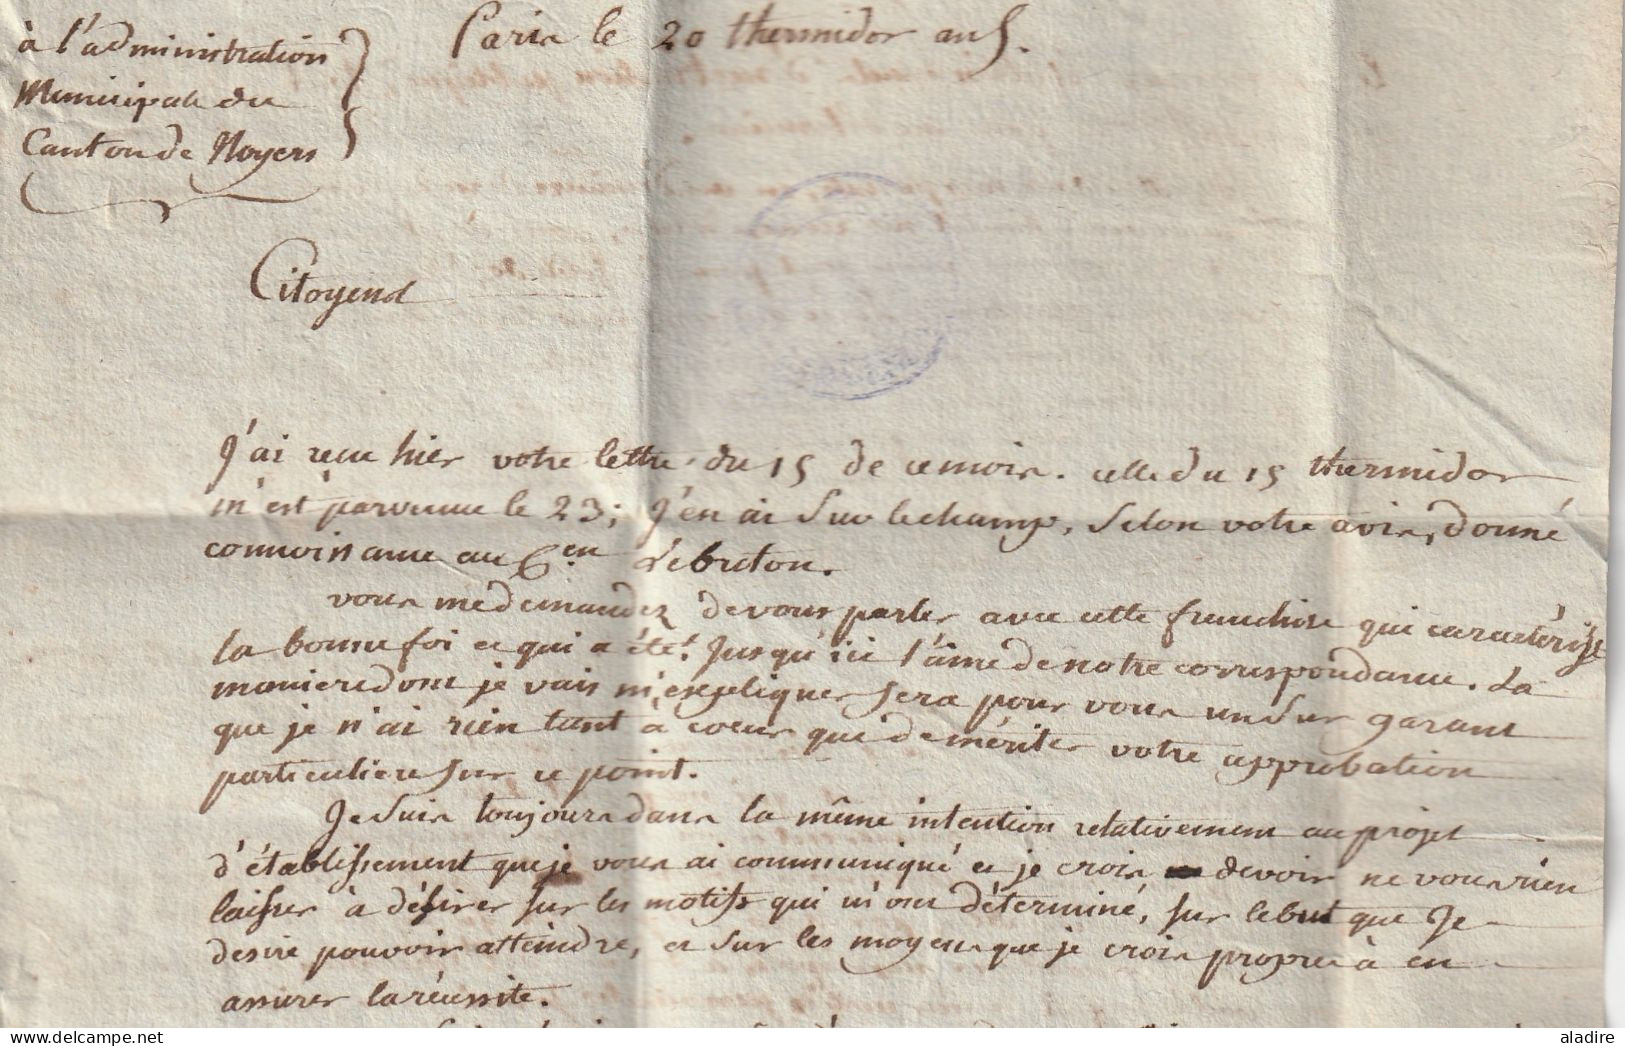 à l'administration
Municipale du
Canton de Noyers
Paris le 20 thermidor an 5.
Citoyens
J'ai reçu hier votre lettre du 15 de ce mois. celle du 15 thermidor
m'est parvenue le 23; J'en ai sur le champ, selon votre avis, donné
connoissance au C.en Lebreton.
vous me demandez de vous parler avec cette franchise qui caractérise
la bonne foi et qui a été jusqu'ici l'âme de notre correspondance. La
maniere dont je vais m'expliquer sera pour vous un sur garant
que je n'ai rien tant à coeur que de mériter votre approbation
particuliere sur ce point.
Je suis toujours dans la même intention relativement au projet
d'établissement que je vous ai communiqué et je crois devoir ne vous rien
laisser à désirer sur les motifs qui m'ont déterminé, sur le but que je
desire pouvoir atteindre, et sur les moyens que je crois propres à en
assurer la réussite.
aladire